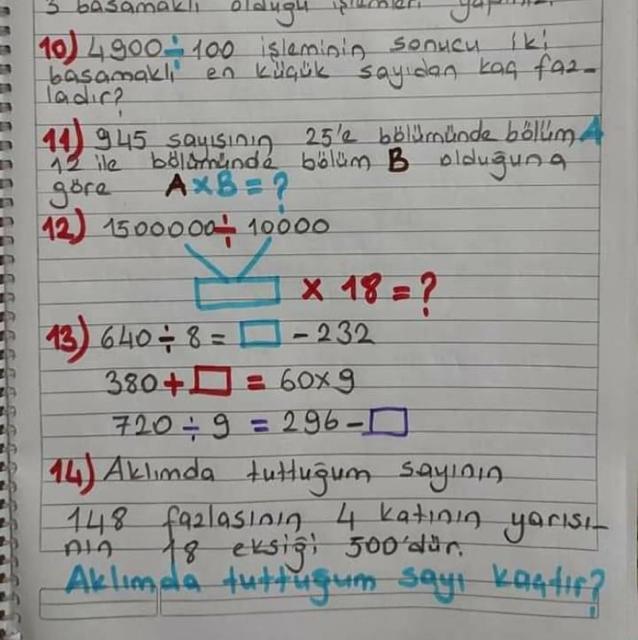 3 basamaklı olduğu işlemleri
10) 4900÷100 işleminin sonucu iki
basamaklı en küçük sayıdan kaç faz-
ladır?
11) 945 sayısının 25'e bölümünde bölüm A
12 ile bölümünde bölüm B olduğuna
göre A×B=?
12) 1500000÷10000
□ × 18=?
13) 640÷8=□-232
380+□=60×9
720÷9=296-□
14) Aklımda tuttuğum sayının
148 fazlasının 4 katının yarısı-
nın 18 eksiği 500'dür.
Aklımda tuttuğum sayı kaçtır?